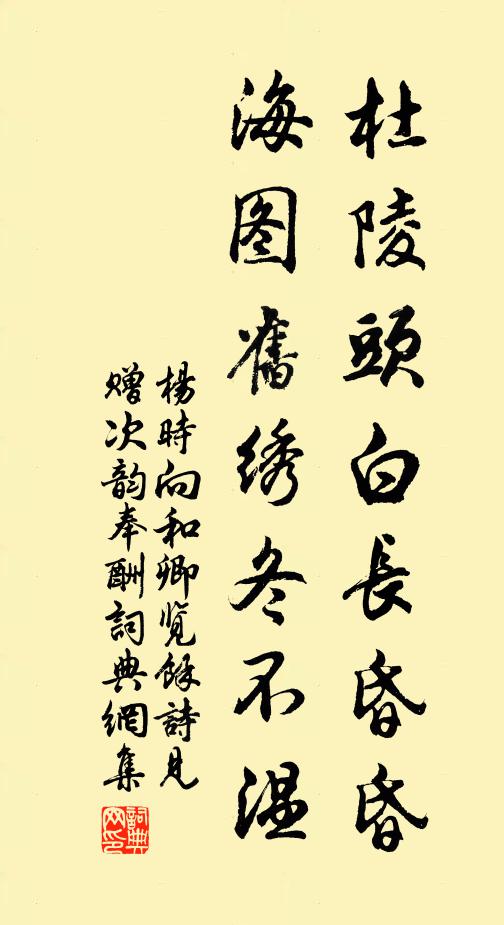 杜陵頭白長昏昏
海图舊绣冬不温
楊時向和卿览馀詩见
赠次韵奉酬詞典網集
詞典网印